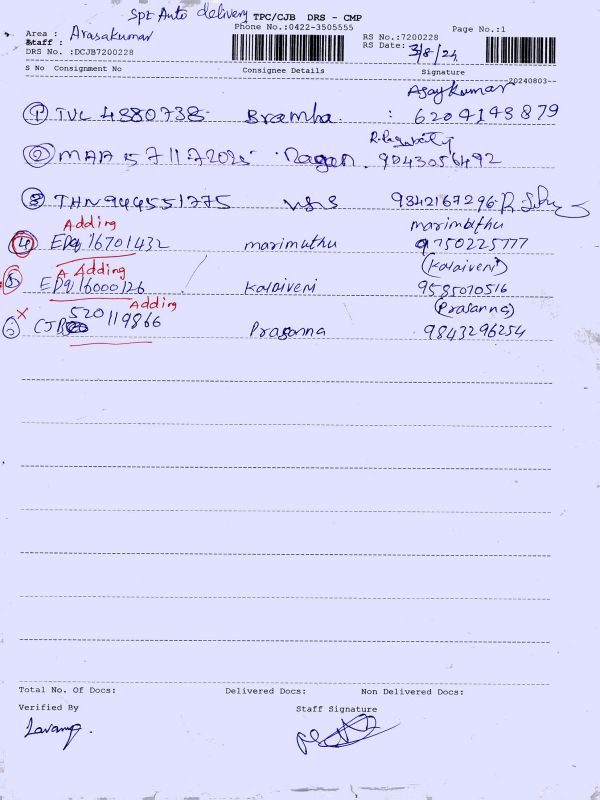 Spt Auto delivery TPC/CJB DRS - CMP
Phone No.:0422-3505555
Page No.:1
Area : Arasakumar
Staff :
DRS No. :DCJB7200228
RS No.:7200228
RS Date: 3/8/24
S No Consignment No Consignee Details Signature
20240803
Ajaykumar
① TVL 4880738 Bramha : 6204143879
② MAA 571172025 Nagan 9043056492
③ THN 944551775 9842167296
Adding marimuthu
④ EDq 16701432 marimuthu 9750225777
A Adding (Kalaiveni)
⑤ EDq 16000126 Kalaiveni 9585070516
X Adding (Prasanna)
CJB 520119866 Prasanna 9843296254
Total No. Of Docs: Delivered Docs: Non Delivered Docs:
Verified By Staff Signature